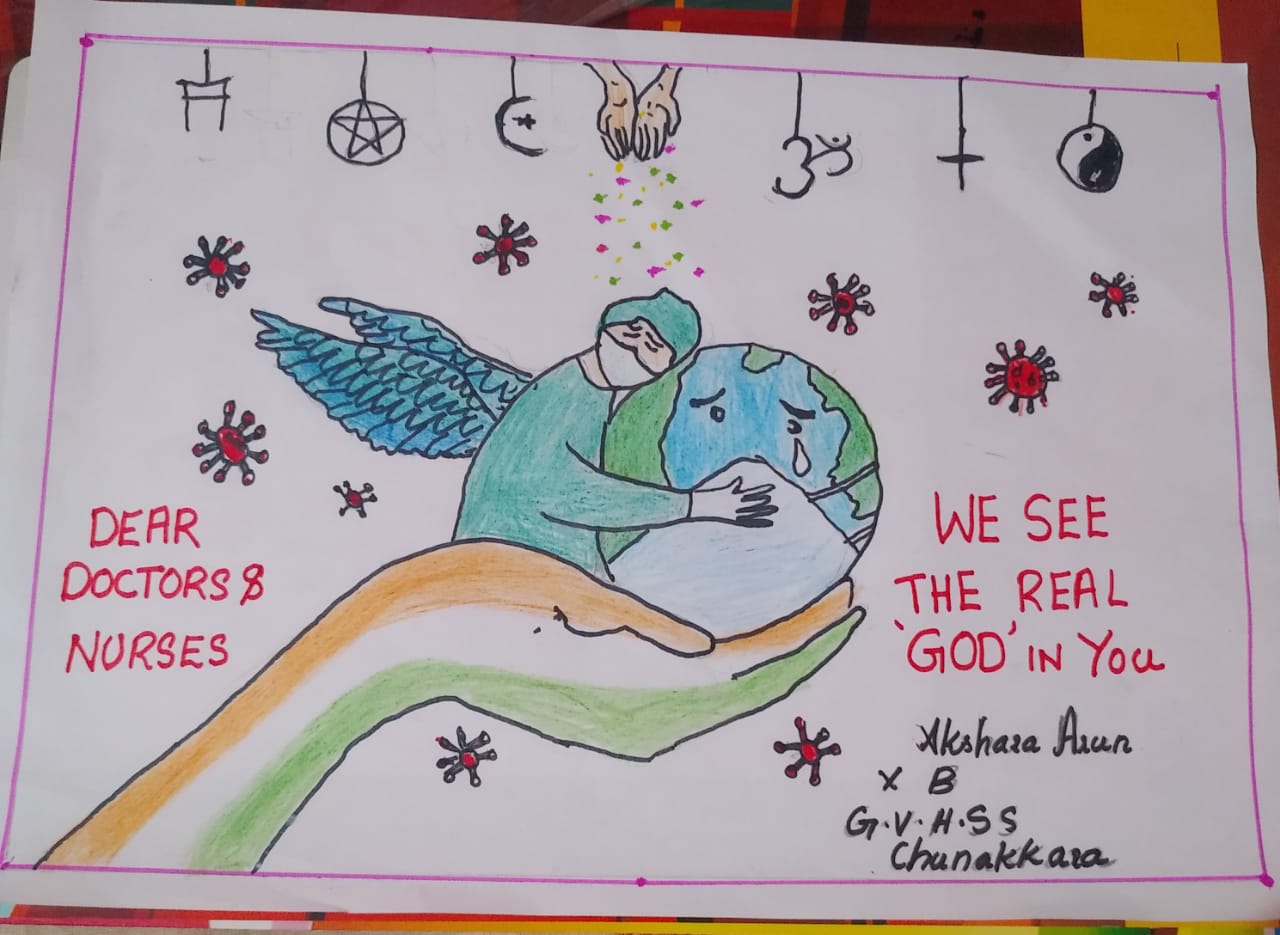 DEAR
DOCTORS &
NURSES
WE SEE
THE REAL
'GOD' IN YOU
Akshara Arun
X B
G.V.H.SS
Chunakkara
ॐ